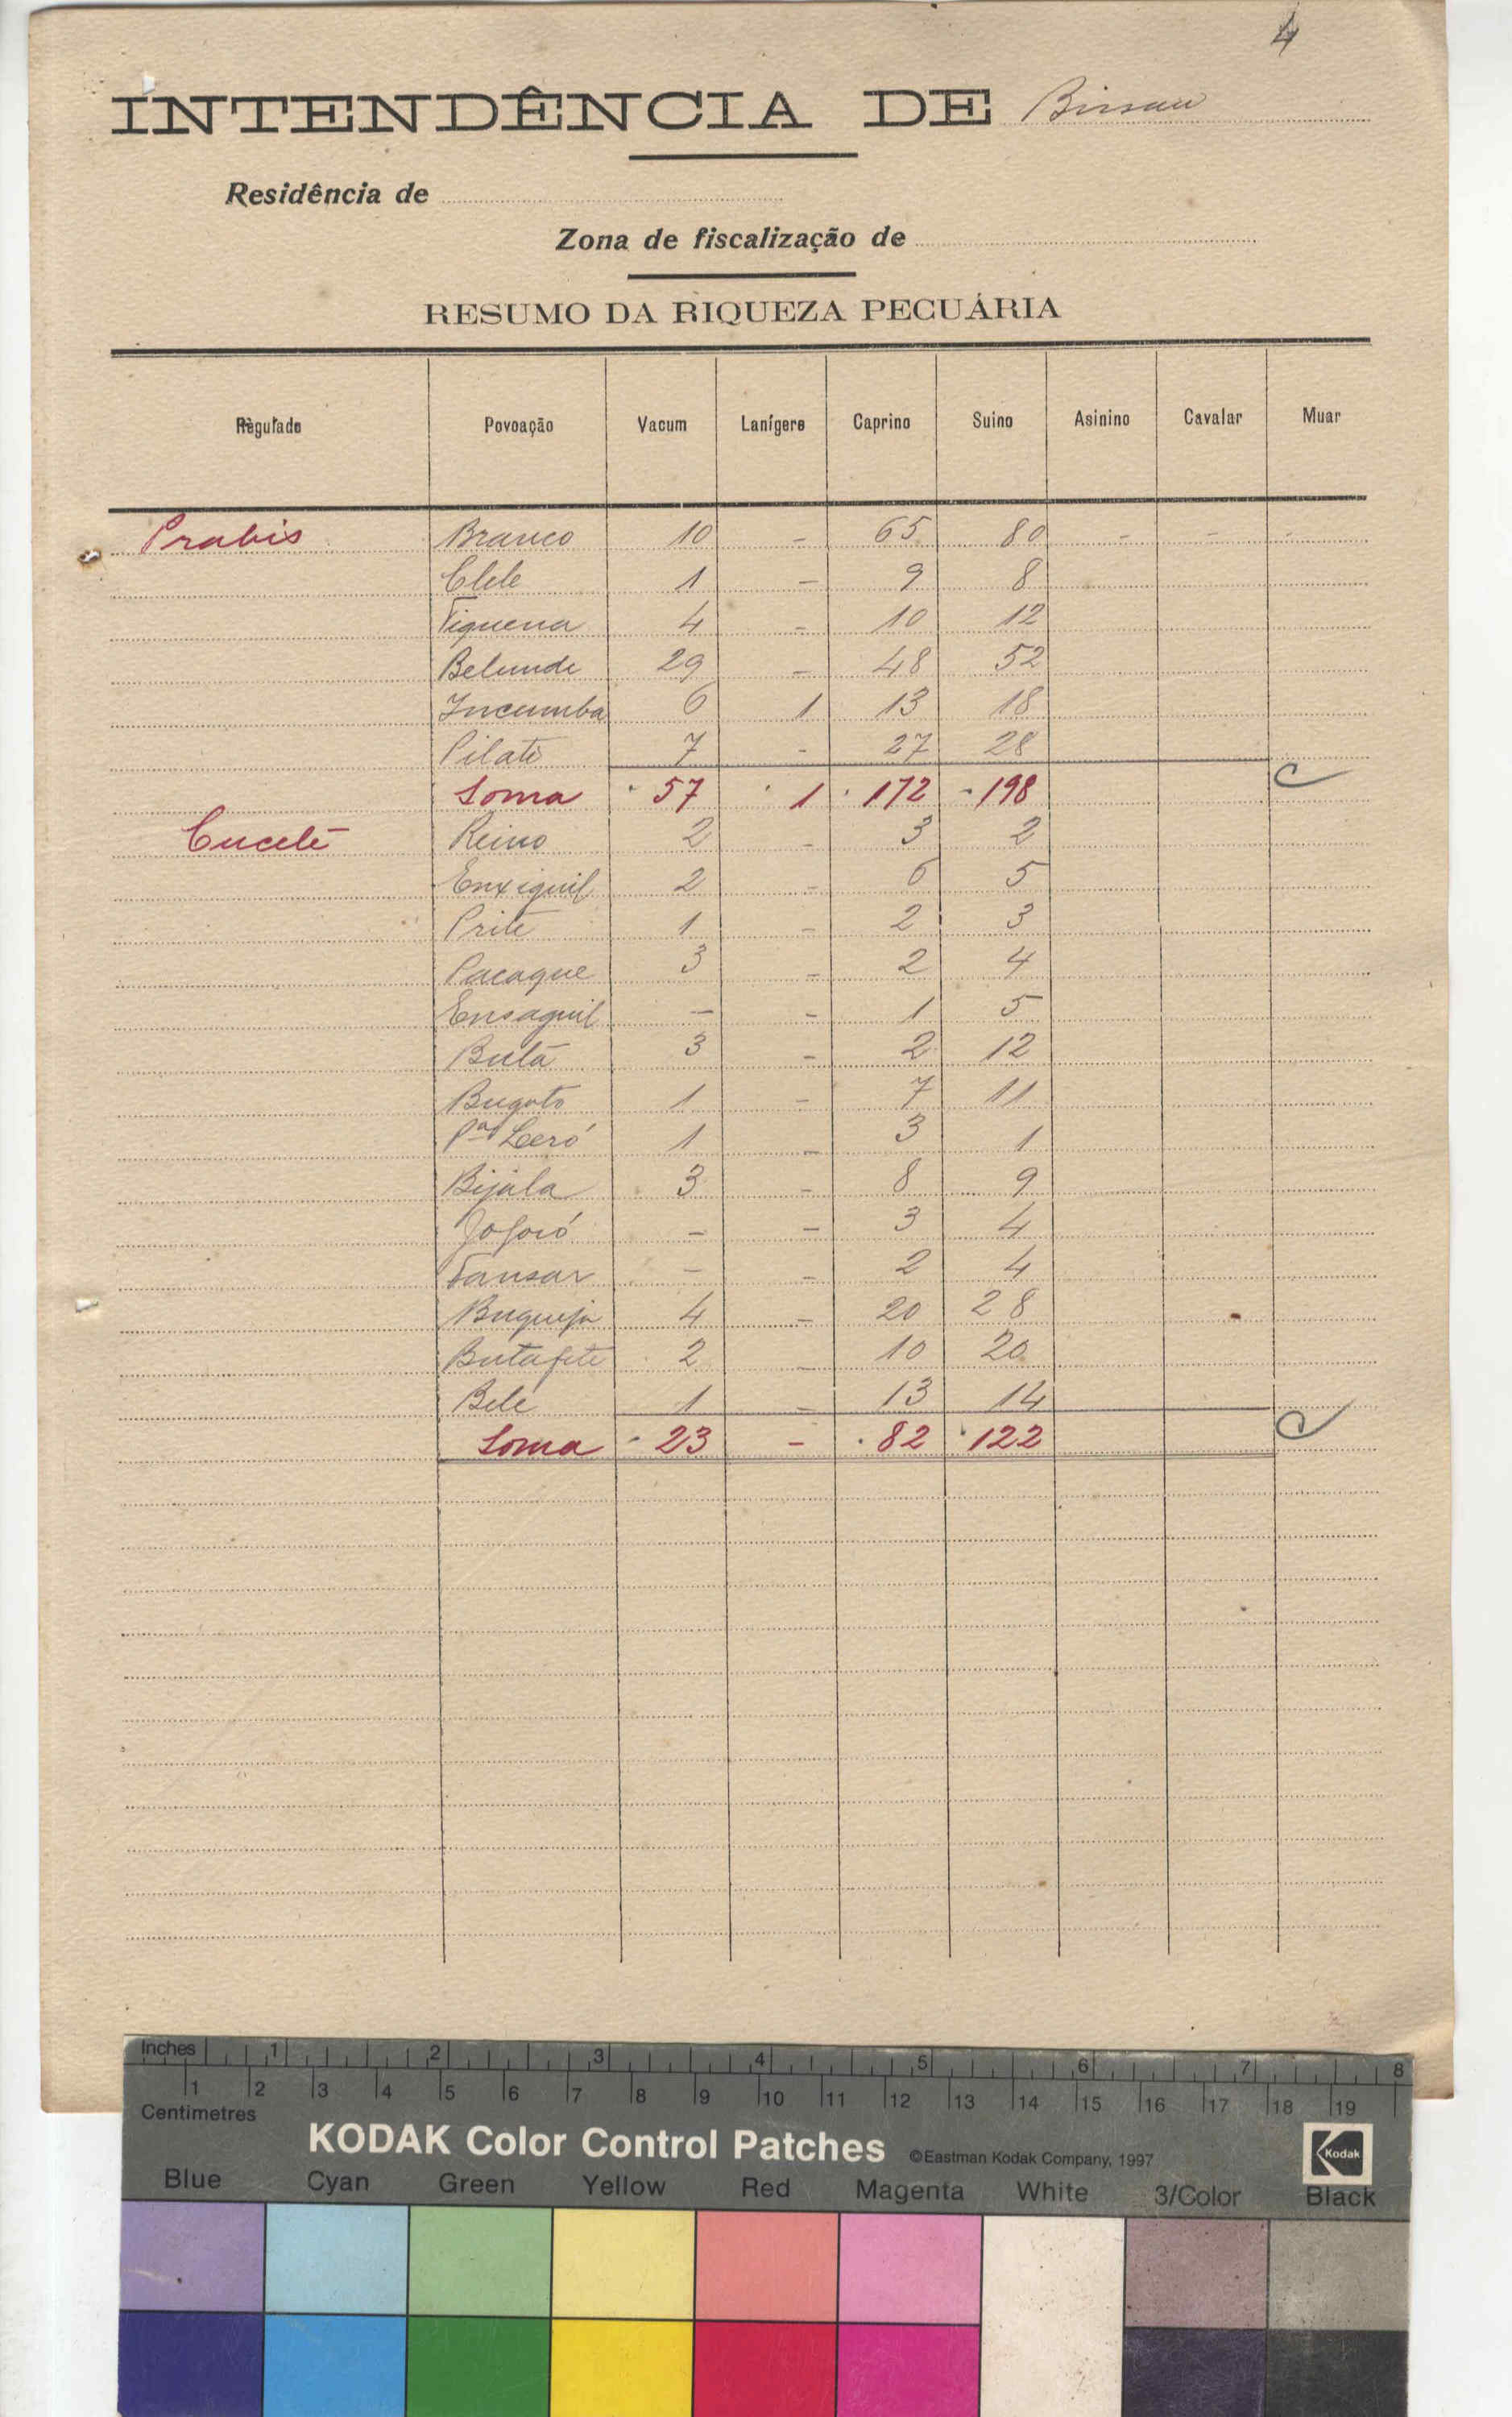 4
INTENDÊNCIA DE Bissau
Residência de
Zona de fiscalização de
RESUMO DA RIQUEZA PECUÁRIA
Règulado Povoação Vacum Lanígero Caprino Suino Asinino Cavalar Muar
Prabis Branco 10 - 65 80 - - -
Clele 1 - 9 8
Tiguena 4 - 10 12
Belunde 29 - 48 52
Incumba 6 1 13 18
Pilate 7 - 27 28
Soma 57 1 172 198
Cucelé Reino 2 - 3 2
Enxiguil 2 - 6 5
Prite 1 - 2 3
Pacaque 3 - 2 4
Ensaguil - - 1 5
Bulà 3 - 2 12
Bugoto 1 - 7 11
Pª Leró 1 - 3 1
Bijála 3 - 8 9
Jofoió - - 3 4
Fansar - - 2 4
Buqueja 4 - 20 28
Butafete 2 - 10 20
Bele 1 - 13 14
Soma 23 - 82 122
Inches 1 2 3 4 5 6 7 8
1 2 3 4 5 6 7 8 9 10 11 12 13 14 15 16 17 18 19
Centimetres
KODAK Color Control Patches ©Eastman Kodak Company, 1997 Kodak
Blue Cyan Green Yellow Red Magenta White 3/Color Black